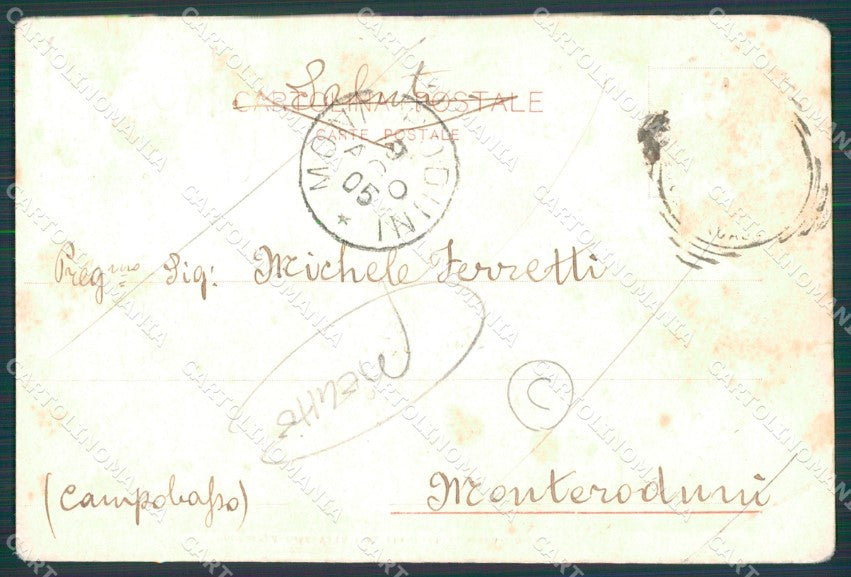 Saluti
CARTOLINA POSTALE
CARTE POSTALE
MONTERODUNI
9
AGO
05
Preg.mo Sig: Michele Ferretti
C
(Campobasso) Monteroduni
CARTOLINOMANIA